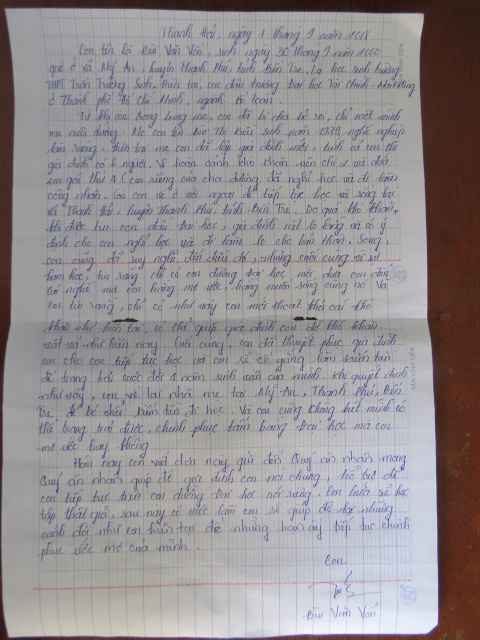 Thạnh Hải, ngày 1 tháng 9 năm 2018
Con tên là Bùi Văn Vốn, sinh ngày 30 tháng 9 năm 2000
quê ở xã Mỹ An, huyện Thạnh Phú, tỉnh Bến Tre. Là học sinh trường
THPT Trần Trường Sinh. Hiện tại, con đậu trường Đại học Tài Chính - Marketing
ở Thành phố Hồ Chí Minh, ngành kế toán.
Từ khi con trong bụng mẹ, con đã bị cha bỏ rơi, chỉ một mình
mẹ nuôi dưỡng. Mẹ con tên Bùi Thị sinh năm 1979, nghề nghiệp
làm ruộng. Hiện tại mẹ con đã lập gia đình mới, tính cả con thì
gia đình có 6 người. Vì hoàn cảnh khó khăn nên chị 2 và đứa
em gái thứ 4 (con riêng của cha dượng) đã nghỉ học và đi làm
công nhân. Còn con về ở với ngoại để tiếp tục học và sống tại
xã Thạnh Hải, huyện Thạnh Phú, tỉnh Bến Tre. Do quá khó khăn,
khi được tin con đậu Đại học, gia đình rất lo lắng và có ý
định cho con nghỉ học và đi làm lo cho bản thân. Song,
con cũng đã suy nghĩ đến điều đó, nhưng cuối cùng vì sự
ham học, tin rằng chỉ có con đường Đại học mới đưa con đến
cái nghề mà con hằng mơ ước, hằng muốn sống cùng nó và
con tin rằng, chỉ có như vậy con mới thoát khỏi cái khó
khăn như hiện tại, có thể giúp gia đình con đỡ khó khăn,
vất vả như hiện nay. Cuối cùng, con đã thuyết phục gia đình
con cho con tiếp tục học và con sẽ cố gắng làm kiếm tiền
để trang trải cuộc đời 4 năm sinh viên của mình. Khi quyết định
như vậy, con về lại nhà mẹ tại Mỹ An, Thạnh Phú, Bến
Tre để bố kiếm tiền đi học. Và con cũng không biết mình có
thể trang trải được, chinh phục tấm bằng Đại học mà con
mơ ước hay không.
Hôm nay con viết đơn này gửi đến Quý ân nhân mong
Quý ân nhân giúp đỡ gia đình con nói chung, hỗ trợ để
con tiếp tục trên con đường Đại học nói riêng. Con hứa sẽ học
tập thật giỏi, sau này có việc làm con sẽ giúp đỡ lại những
mảnh đời như con hiện tại để những bạn ấy tiếp tục chinh
phục ước mơ của mình.
Con
Bùi Văn Vốn